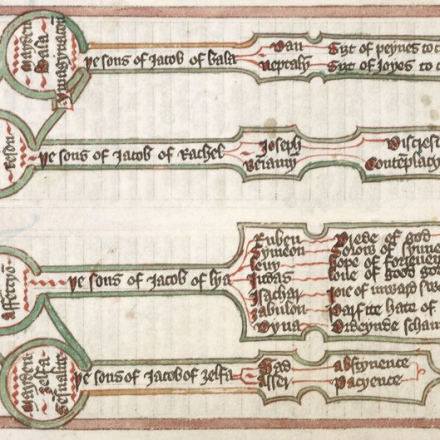 Mayden
Bala
Ymagynacion
ye sons of Jacob of bala
Dan
Neptaly
Syt of peynes to c
Syt of joyes to c
Reson
ye sons of Jacob of Rachel
Joseph
Beniamy
Discresi
Contẽplacy
Affeccyõ
ye sons of Jacob of lya
Ruben
Symeon
leuy
Judas
Isachar
zabulon
Dyna
Drede of god
Sorow of synne
hope of forʒeuen
loue of good go
Joie of inward swe
Parfite hate of
Ordeynde scham
Mayden
zelfa
Sensualite
ye sons of Jacob of zelfa
Gad
Asser
Abstynence
Pacyence